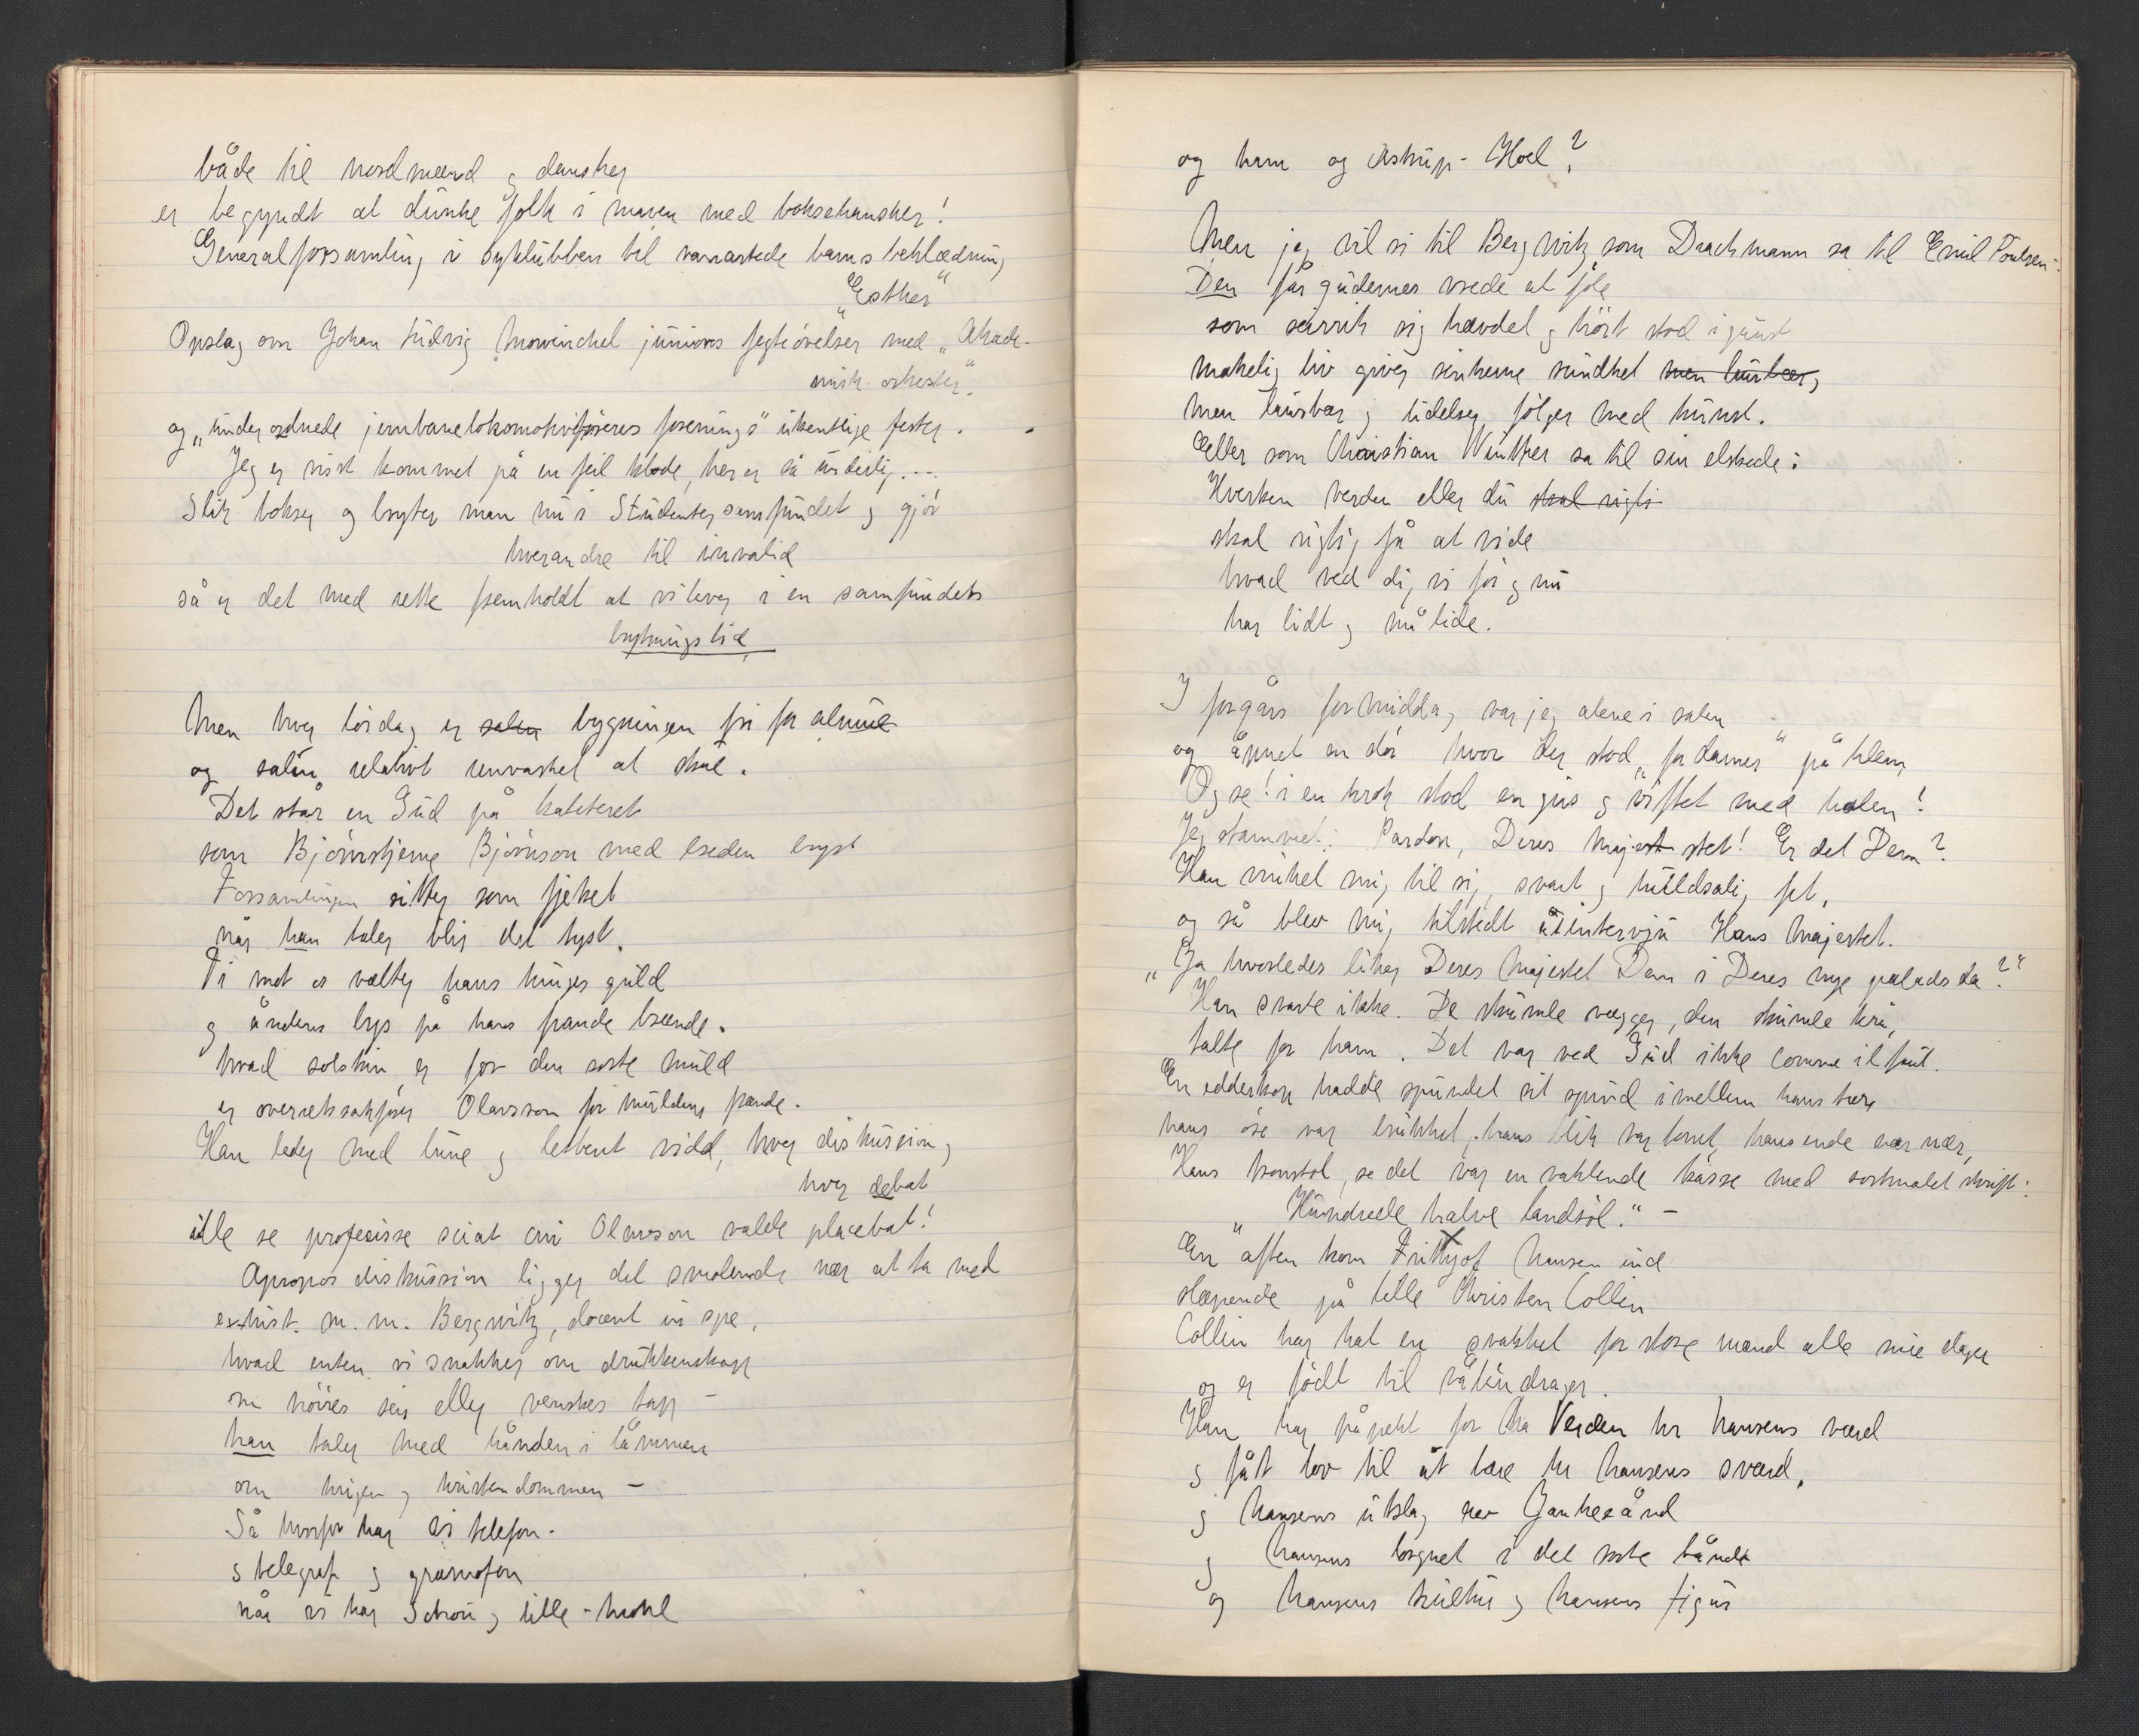 både til nordmænd og dansker
er begyndt at dunke folk i maven med boksehansker!
Generalforsamling i syklubben til vanartede barns beklædning
"Esther"
Opslag om Johan Ludvig Mowinckel juniors fegteøvelser med "Akade-
misk orkester".
og "underordnede jernbanelokomotivføreres forenings" ukentlige fester.
Jeg er visst kommet på en feil klode, her er så urolig...
Slik bokser og bryter man nu i Studentersamfundet og gjør
hverandre til invalid
så er det med rette fremholdt at vi lever i en samfundets
brytningstid
Men hver lørdag er salen bygningen fri for almue
og salen relativt renvasket at skue.
Det står en Gud på kateteret
som Bjørnstjerne Bjørnson med breden bryst
Forsamlingen sitter som fjetret
når han taler blir det tyst.
Ti mot os vælter hans tunges guld
og åndens lys på hans pande brænde.
hvad solskin er for den sorte muld
er overretssakfører Olavsson for muldens frænde.
Han leder med lune og letbent vidd, hver diskusion,
hver debat
ille se profecisse sciat cui Olavson valde placebat!
Apropos diskussion ligger det svælende nær at ta med
exhist. m. m. Bergwitz, docent in spe,
hvad enten vi snakker om drukkenskap
om høires seir eller venstres tap –
han taler med hånden i lommen
om krigen og kristendommen –
Så hvorfor har vi telefon.
og telegraf og gramofon
når vi har Schou og lille-Krohl
og ham og Astrup-Hoel?
Men jeg vil si til Bergwitz som Drachmann sa til Emil Poulsen:
Den får gudernes vrede at føle
som særrik sig hævdet og høit stod i gunst
makelig liv giver sinkerne sundhet men laurbær,
men laurbær og lidelser følger med kunst.
Eller som Christian Winther sa til sin elskede:
Hverken verden eller du skal rigti
skal rigtig få at vide
hvad ved dig vi før og nu
har lidt og må lide.
I forgårs formiddag var jeg alene i salen
og åpnet en dør hvor der stod "for damer" på klem,
Og se! i en krok stod en gris og viftet med halen!
Jeg stammet: Pardon, Deres Majest stet! Er det Dem?
Han vinket mig til sig, svart og huldsalig fet,
og så blev mig tilstedt at intervju Hans Majestet.
"Ja hvorledes liker Deres Majestet Dem i Deres nye palads da?"
Han svarte ikke. De skumle vægger, den skumle krå,
talte for ham. Det var ved Gud ikke comme il faut.
En edderkop hadde spundet sit spind imellem hans tær
hans øie var brukket, hans blik var tomt, hans ende var nær,
Hans tronstol, se det var en vaklende kasse med sortmalet skrift:
"Hundrede halve landsøl." –
En aften kom Frithjof Hansen ind
slæpende på lille Christen Collin
Collin har hat en svakhet for store mænd alle sine dager
og er født til våkendrager.
Han har påpekt for Verden hr Hansens værd
og fåt lov til at bære hr Hansens sværd,
og Hansens utslag av Yankeeånd
og Hansens lorgnet i det sorte bånd
og Hansens kultur og Hansens figur